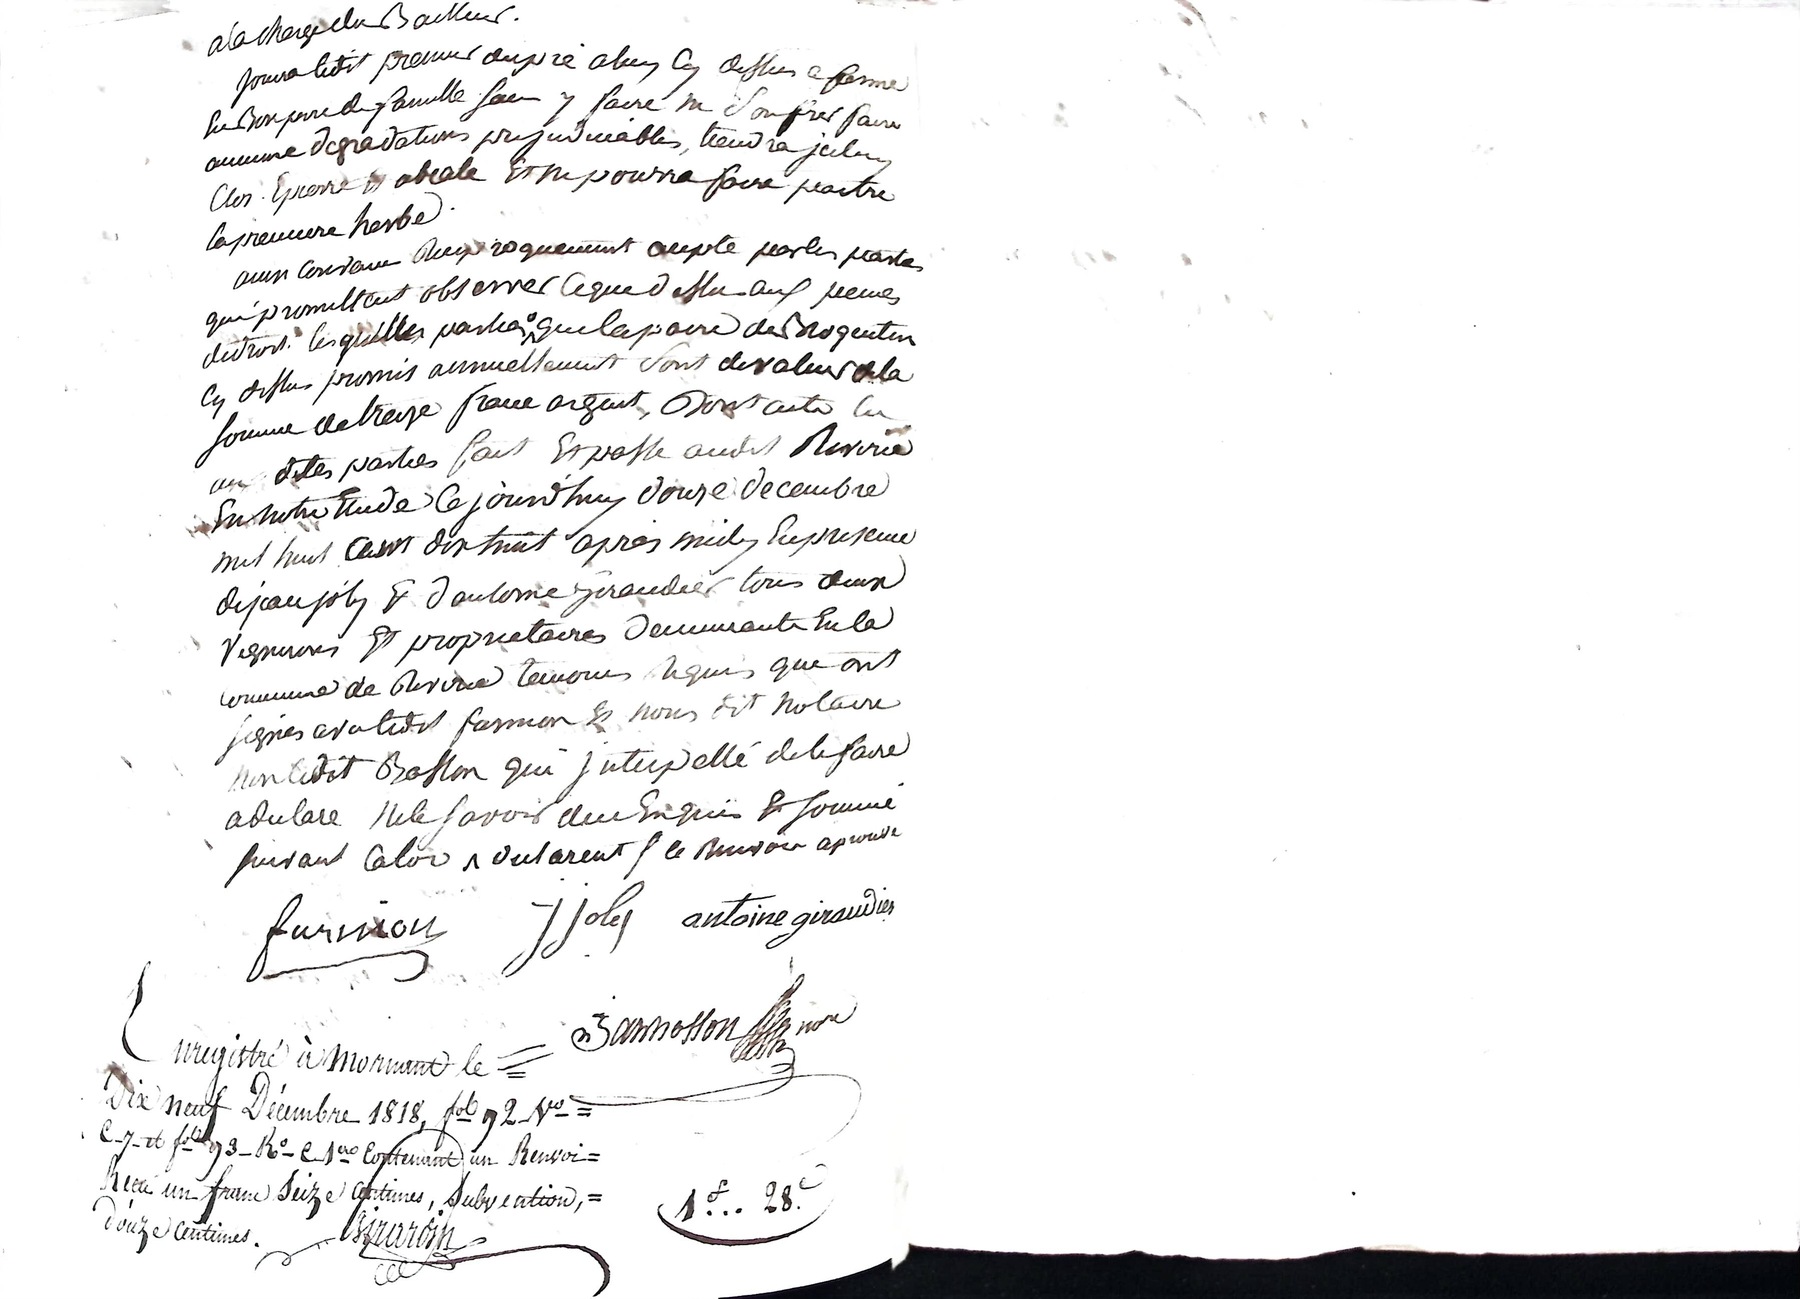 a la charge du Bailleur.
Jouira ledit preneur du pré a luy cy dessus afermé
En Bon pere de famille sans y faire ni souffrir faire
aucune degradations prejudiciables, tiendra jceluy
Clos Epierré et abealé Et ne pourra faire paitre
la premiere herbe.
ainsi convenu Reciproquement accepté par les parties
qui promettent observer ce que dessus aux peines
de droit. lesquelles parties que la paire de
cy dessus promis annuellement sont de valeur de la
somme de treize franc argent, Dont acte lu
aux dites parties fait Et passé audit Riverie
En notre Etude Ce jourd'huy douze decembre
mil huit Cent dix huit après midy En presence
de jean joly & d'antoine giraudier tous deux
vignerons Et proprietaires demeurants En la
commune de Riverie temoins requis qui ont
signés avec ledit furmion & nous dit notaire
non ledit Basson qui jnterpellé de le faire
a declaré ne le savoir de ce Enquis & sommé
suivant la loi declarent le Renvoi aprouvé
furmion J Joly antoine giraudier
nore
Enregistré à Mornant le
Dix neuf Décembre 1818, fol. 92 Vo =
C. 7 et fol. 93 Ro C. 1ere Contenant un Renvoi =
Recu un franc Seize Centimes, Subvention, =
Douze Centimes. Girardin
1f... 28c.